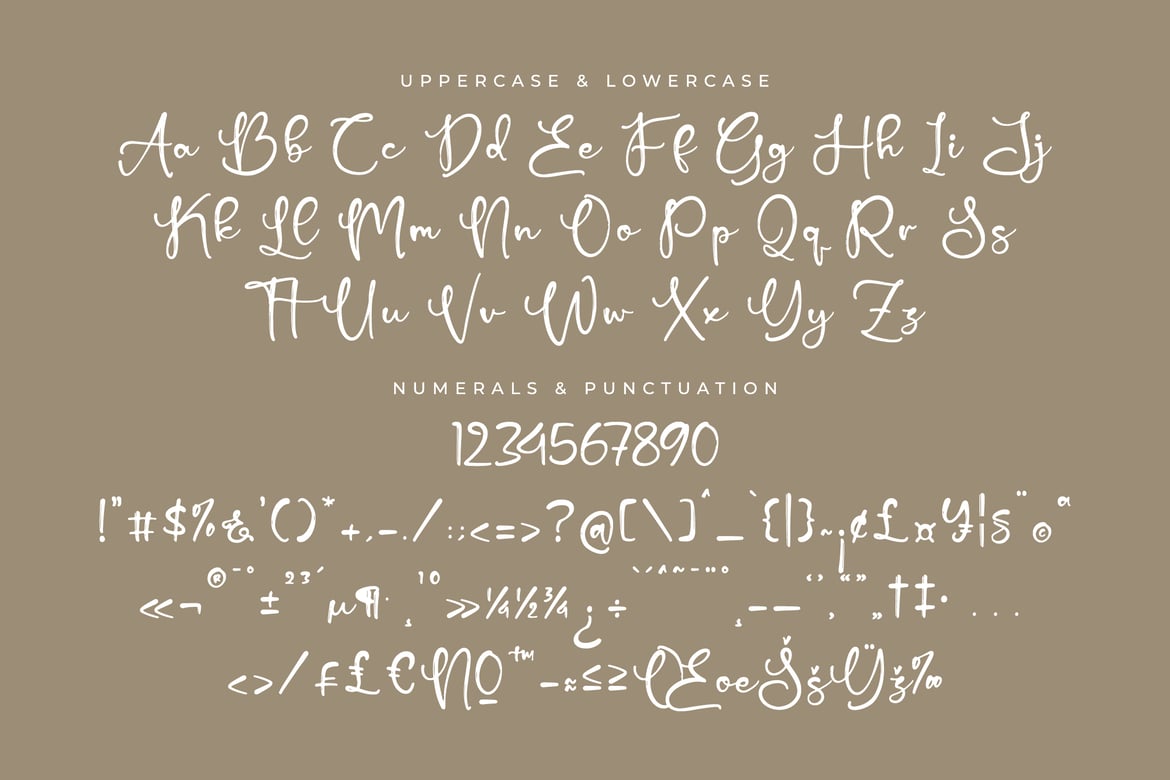 UPPERCASE & LOWERCASE
Aa Bb Cc Dd Ee Ff Gg Hh Ii Jj
Kk Ll Mm Nn Oo Pp Qq Rr Ss
Tt Uu Vv Ww Xx Yy Zz
NUMERALS & PUNCTUATION
1234567890
!"#$%&'()*+,-./:;<=>?@[\]^_`{|}~¡¢£¤¥¦§¨©ª
«¬®¯°±²³´µ¶·¸¹º»¼½¾¿÷ˋˊˆ˜¯¨˚¸–—‘’‚“”„†‡•...
‹›/₣₤€№™−≈≤≥ŒœŠšŸž‰